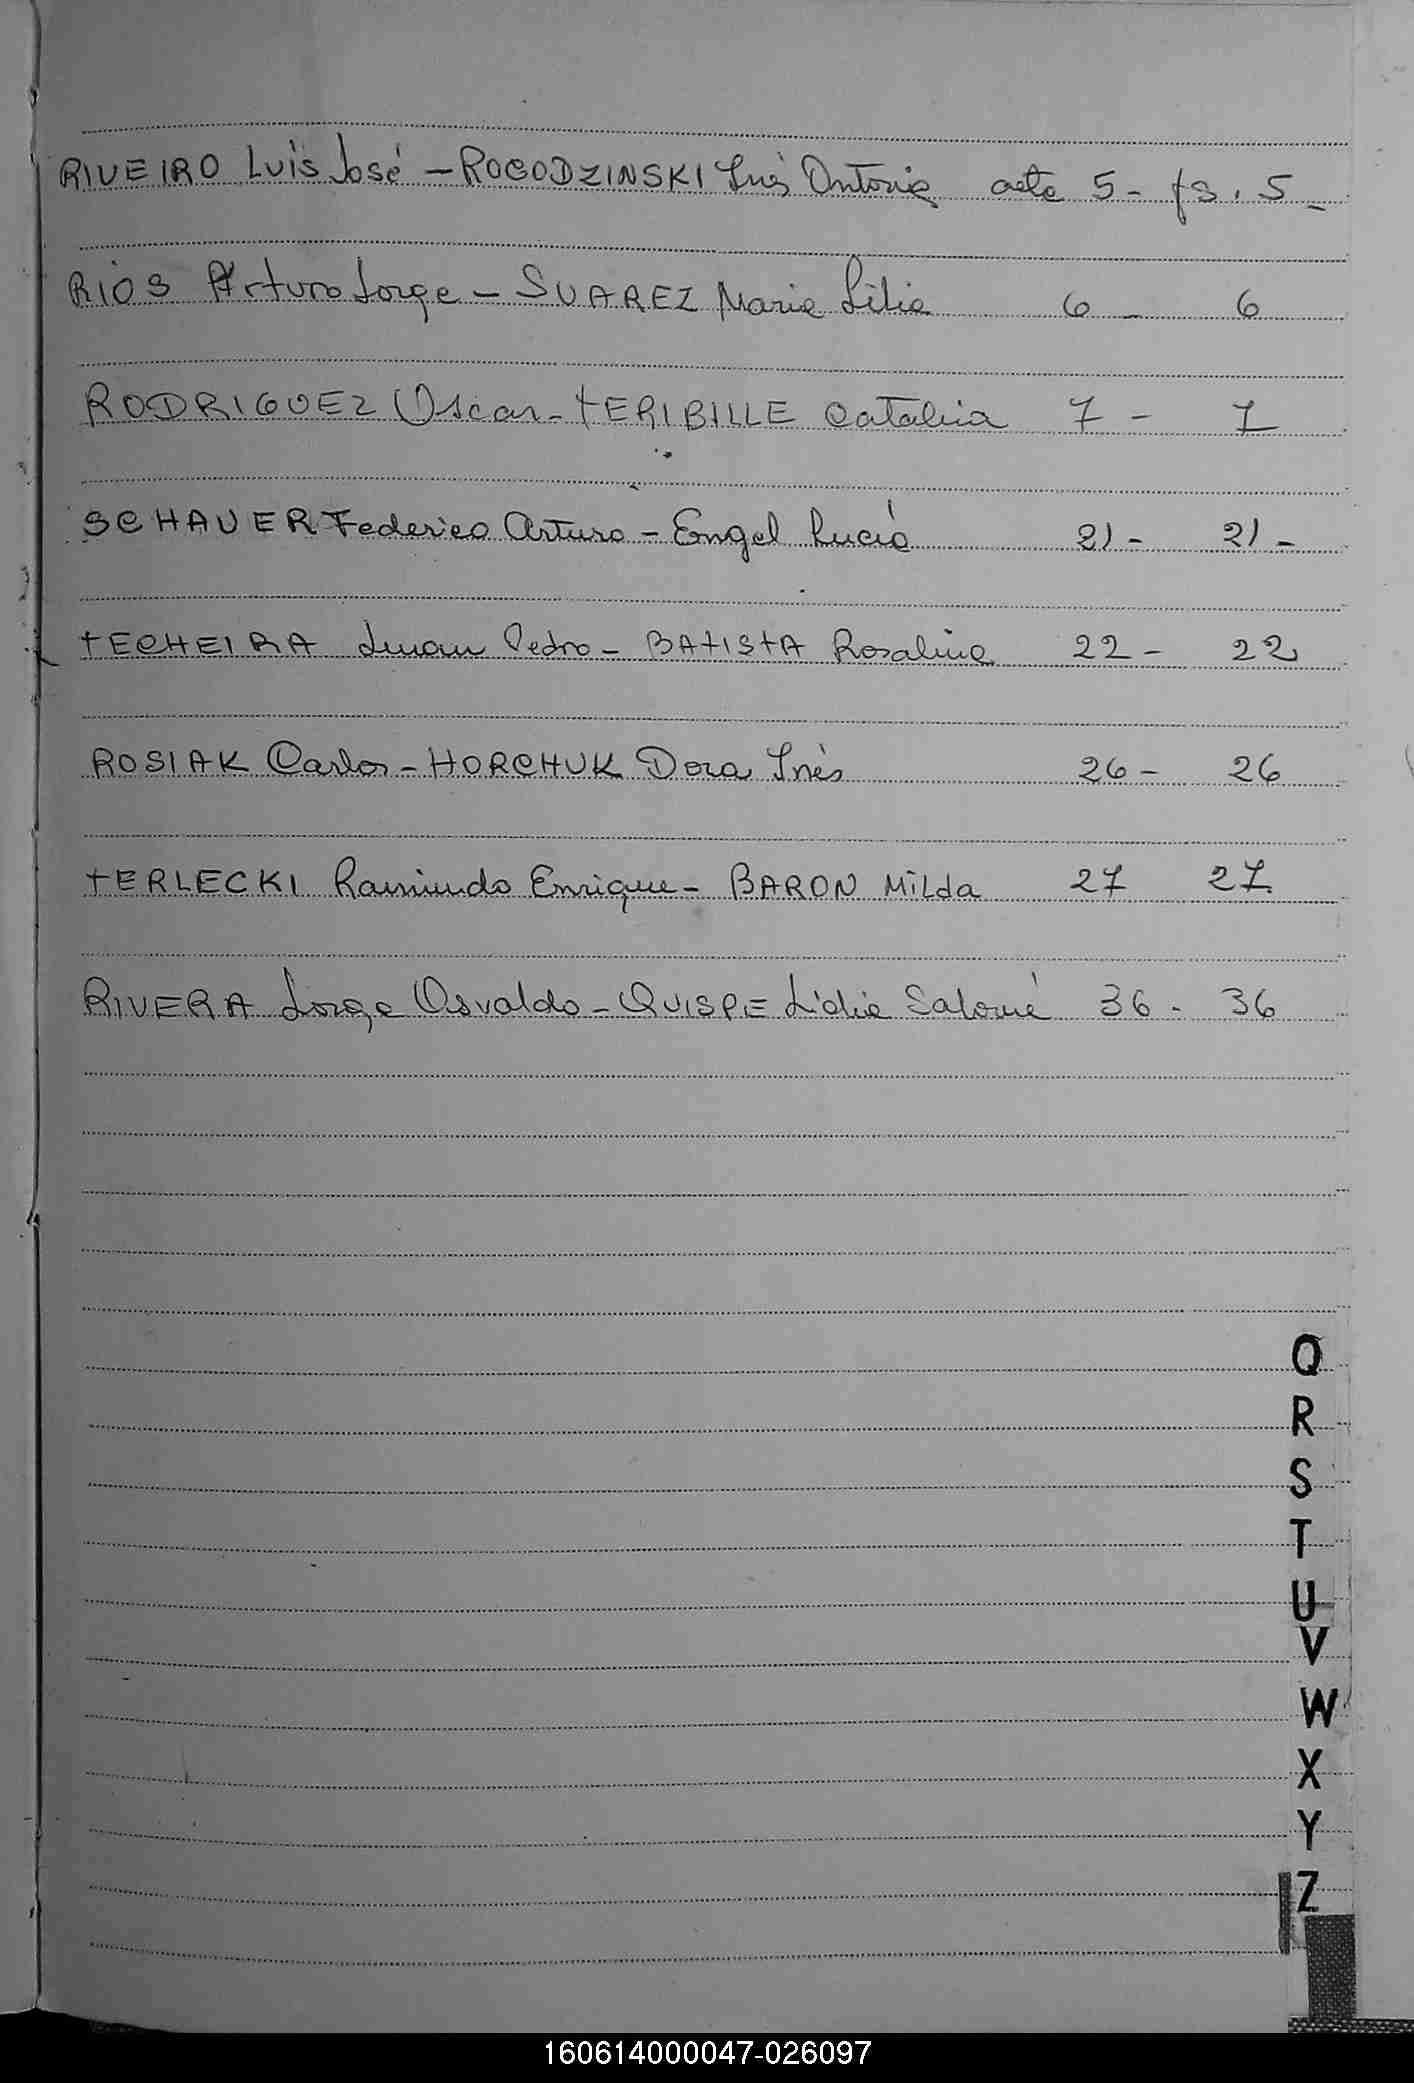 RIVEIRO Luis José - ROGODZINSKI Inés Antonia acta 5 - fs. 5 -
RIOS Arturo Jorge - SUAREZ Maria Lilia 6 - 6
RODRIGUEZ Oscar - TERIBILLE Catalina 7 - 7
SCHAUER Federico Arturo - Engel Lucía 21 - 21 -
TECHEIRA Juan Pedro - BATISTA Rosalina 22 - 22
ROSIAK Carlos - HORCHUK Dora Inès 26 - 26
TERLECKI Raimundo Enrique - BARON Milda 27 27
RIVERA Jorge Osvaldo - QUISPE Lidia Salomé 36 - 36
Q
R
S
T
U
V
W
X
Y
Z
160614000047-026097